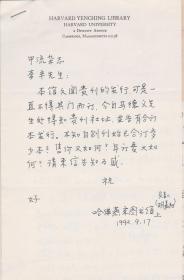 HARVARD-YENCHING LIBRARY
HARVARD UNIVERSITY
2 DIVINITY AVENUE
CAMBRIDGE, MASSACHUSETTS 02138
甲流杂志
李平先生:
本馆久闻贵刊的发行可是一
直不得其门而订。今自马德义先
生处得知贵刊社址,并告有合订
本发行。不知自创刊始已合订多
少本?售价又如何?年订费又如
何?请来信告知为感。
祝
好
哈佛燕京图书馆上
1992.9.17